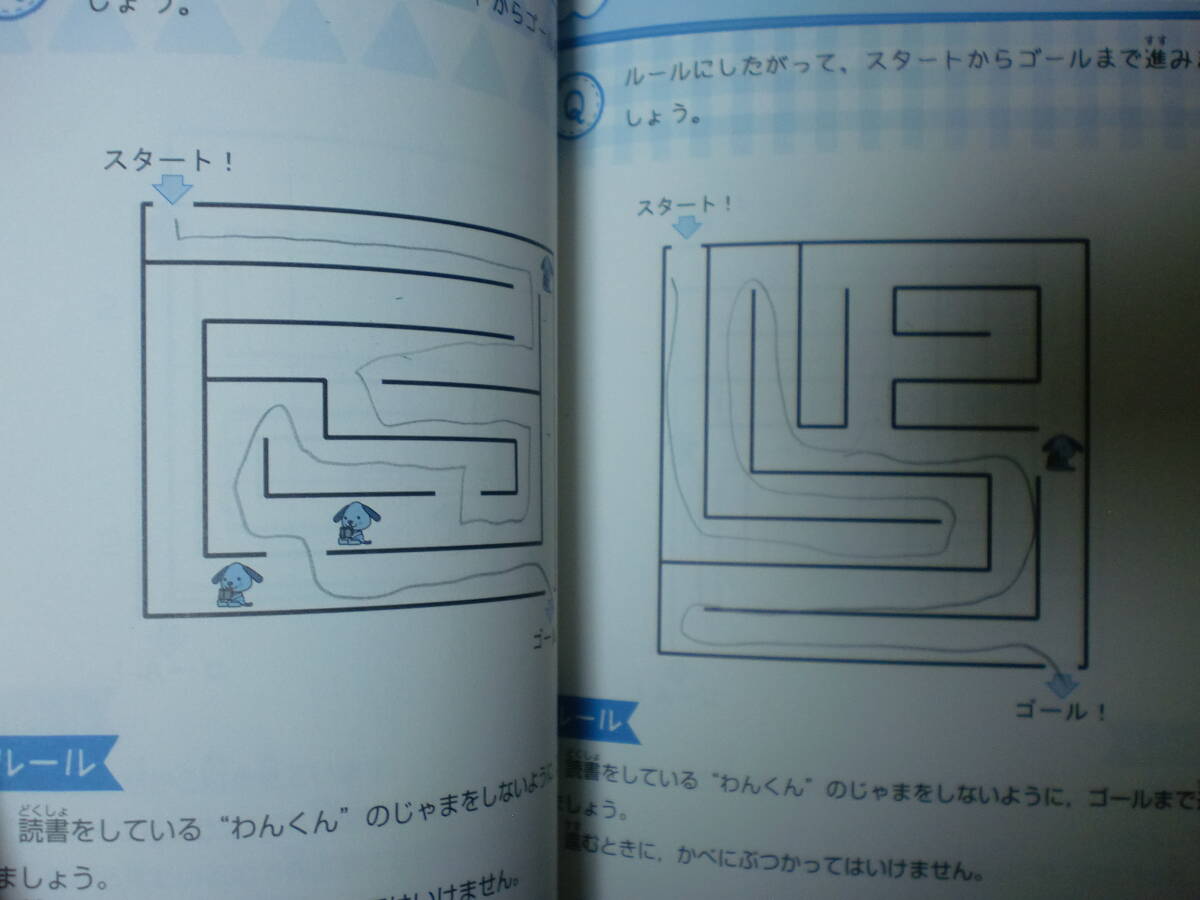 しょう。
からゴー
スタート！
ゴー
ルール
どくしょ
読書をしている“わんくん”のじゃまをしないように
ましょう。
はいけません。
Q
すす
ルールにしたがって、スタートからゴールまで進み
しょう。
スタート！
ゴール！
ルール
どくしょ
読書をしている“わんくん”のじゃまをしないように、ゴールまで
ましょう。
むときに、かべにぶつかってはいけません。